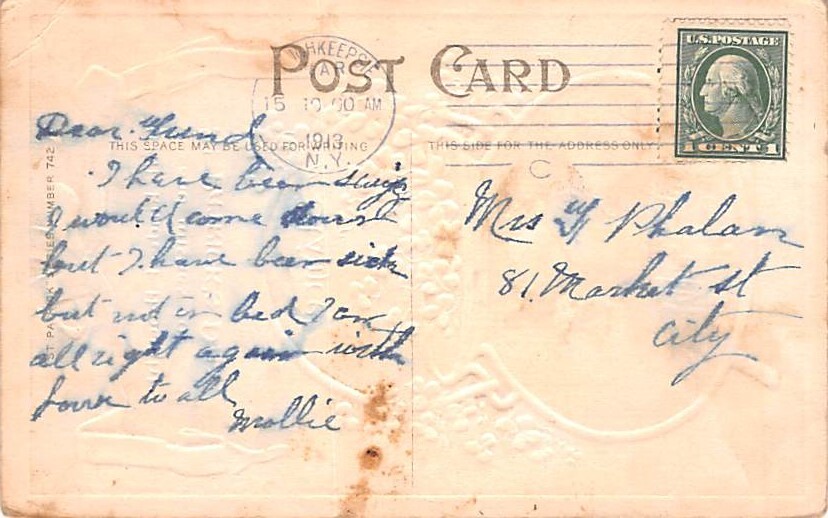 POST CARD
HKEEPS
MAR
15 10 00 AM
1913
N.Y.
C
U.S. POSTAGE
1 CENT 1
THIS SPACE MAY BE USED FOR WRITING
THIS SIDE FOR THE ADDRESS ONLY
NUMBER 742
Dear Friend
I have been saying
I would come down
but I have been sick
but not in bed I am
all right again with
love to all
Mollie
Mrs Phalan
81. Market st
City